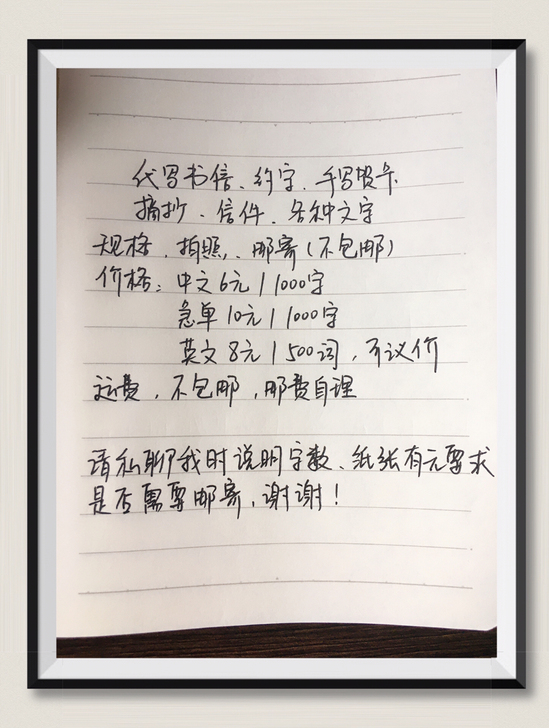 代写书信、约字、手写贺卡
摘抄、信件、各种文字
规格、拍照、邮寄(不包邮)
价格:中文6元/1000字
急单10元/1000字
英文8元/500词,不议价
运费,不包邮,邮费自理
请私聊我时说明字数、纸张有无要求
是否需要邮寄,谢谢!